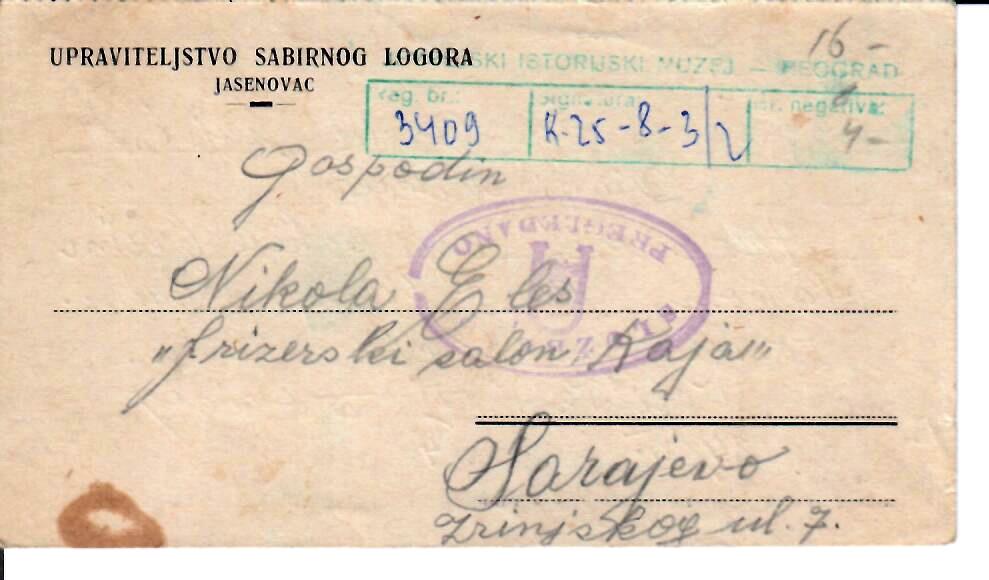 UPRAVITELJSTVO SABIRNOG LOGORA
JASENOVAC
16 –
ISTORIJSKI MUZEJ – BEOGRAD
Reg. br.: Signatura: Br. negativa:
3409 K-25-8-3/2 4-
Gospodin
PREGLEDANO
U
Nikola Eles
„frizerski salon Kaja"
Sarajevo
Zrinjskog ul. 7.